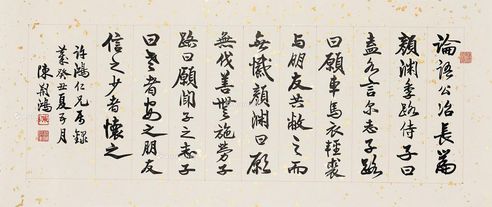 論語公冶長篇
顏淵季路侍子曰
盍各言爾志子路
曰願車馬衣輕裘
與朋友共敝之而
無憾顏淵曰願
無伐善無施勞子
路曰願聞子之志子
曰老者安之朋友
信之少者懷之
許鴻仁兄屬錄
癸丑夏月
陳荊鴻